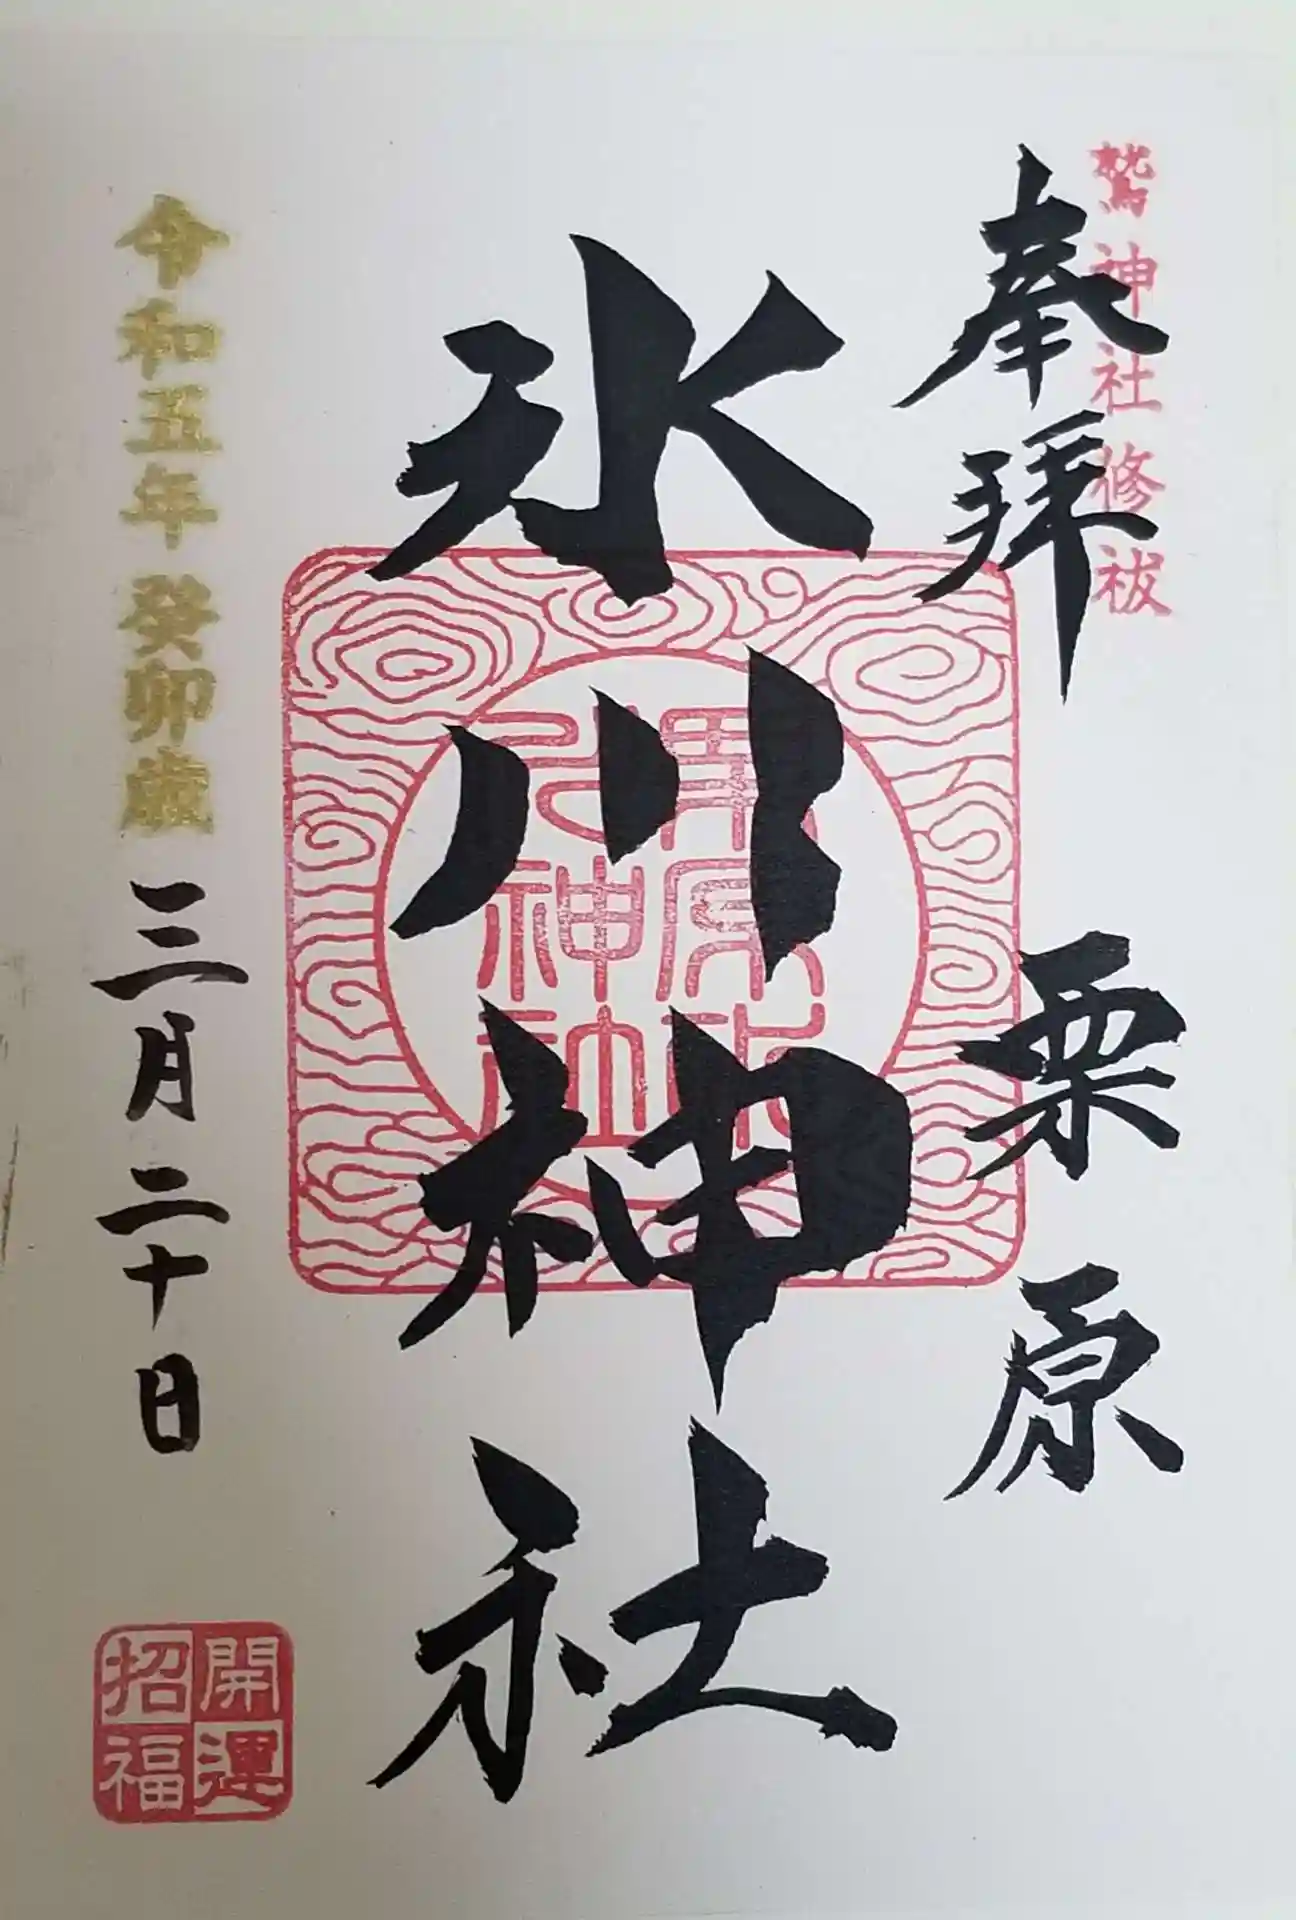 鷲神社修祓
奉拝
栗原
氷川神社
令和五年癸卯歳三月二十日
開運
招福